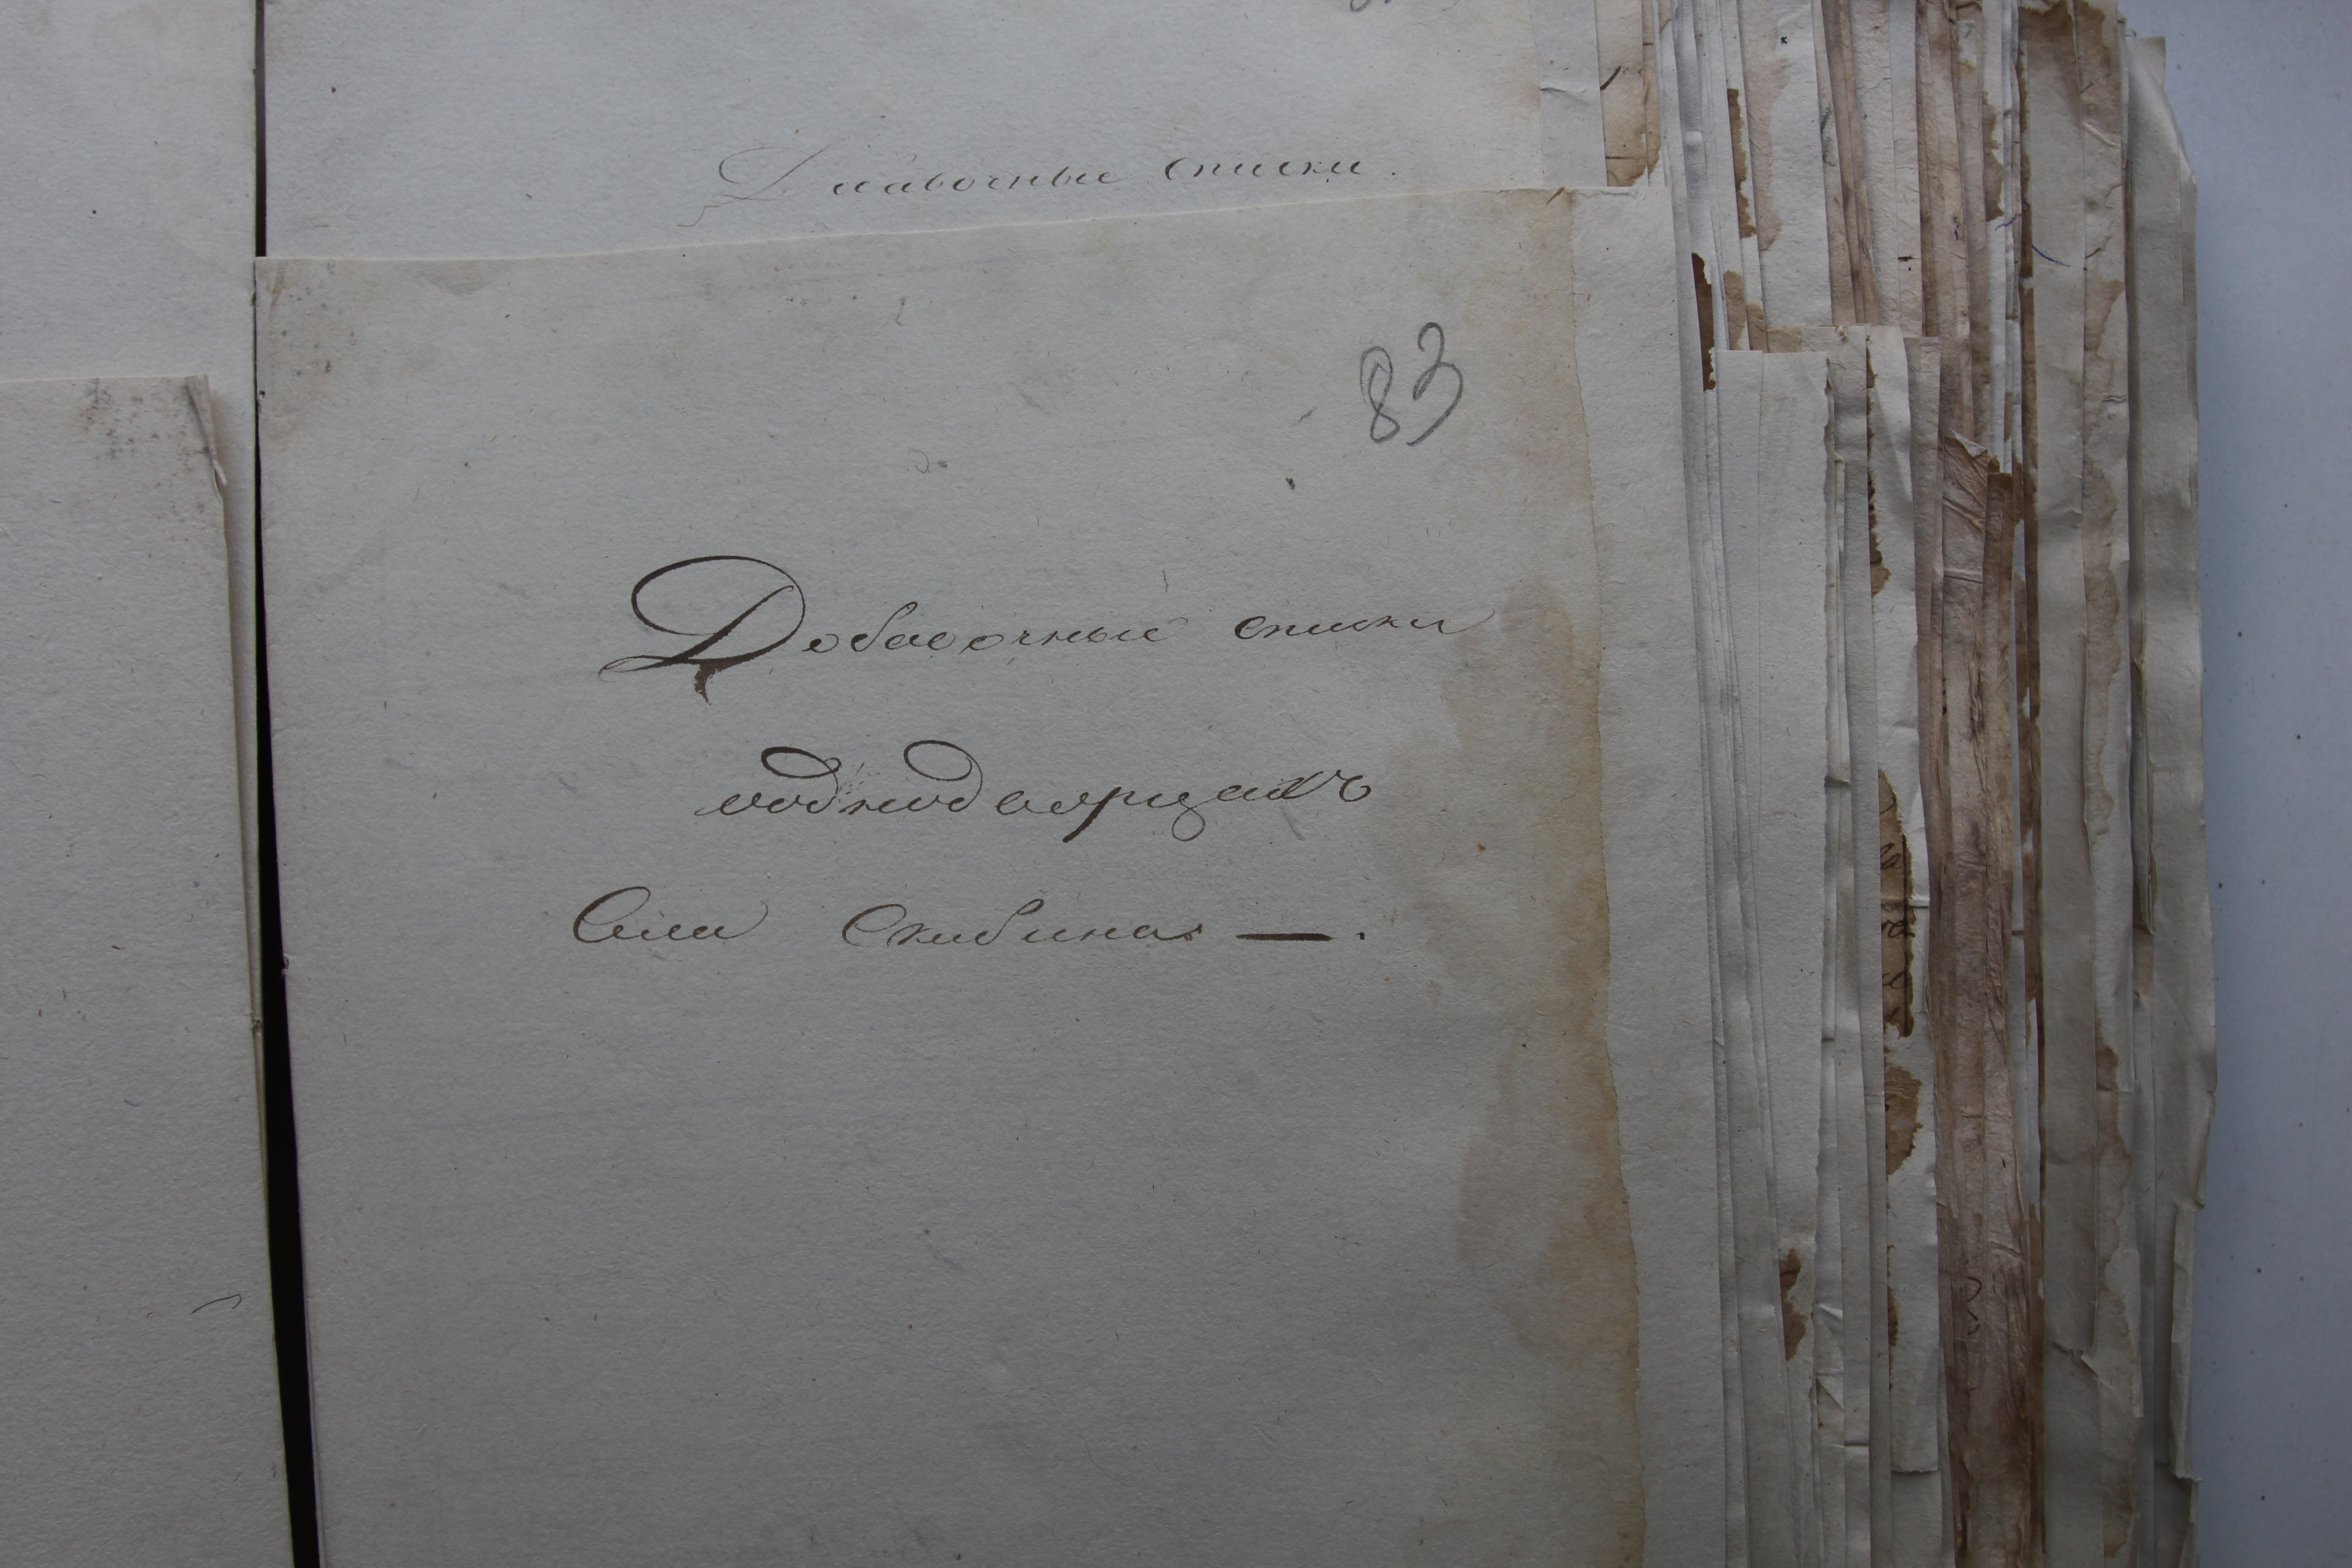 Добавочные списки.
83
Добавочные списки
однодворцахъ
Села Скибина —.